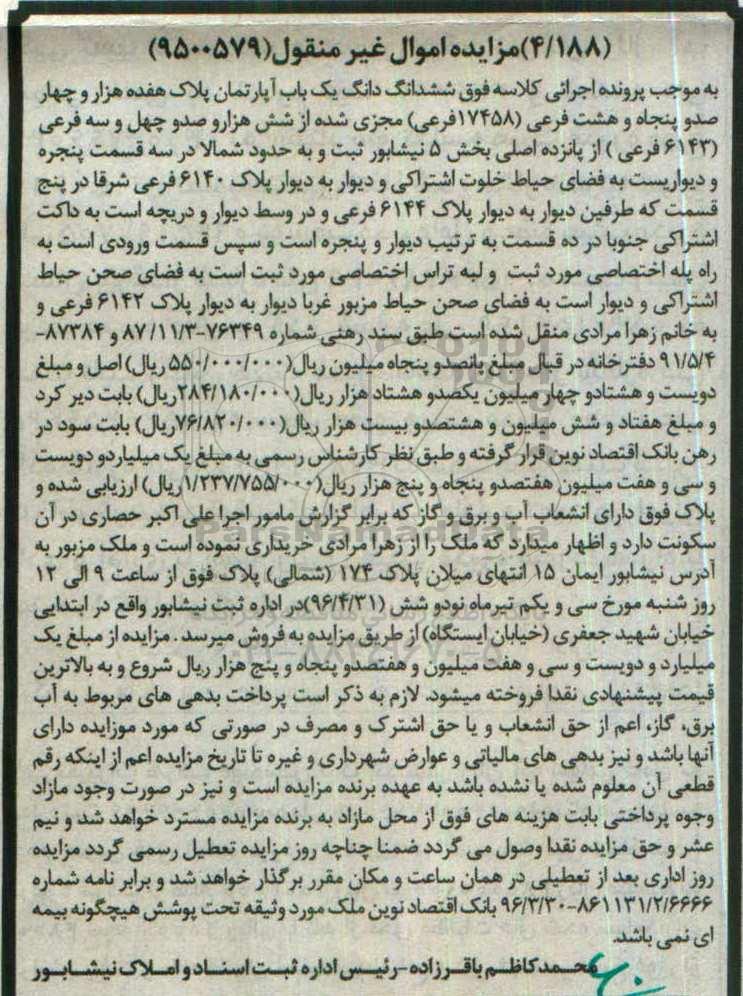 (۴/۱۸۸)مزایده اموال غیر منقول(۹۵۰۰۵۷۹)
به موجب پرونده اجرائی کلاسه فوق ششدانگ دانگ یک باب آپارتمان پلاک هفده هزار و چهار
صدو پنجاه و هشت فرعی (۱۷۴۵۸فرعی) مجزی شده از شش هزارو صدو چهل و سه فرعی
(۶۱۴۳ فرعی ) از پانزده اصلی بخش ۵ نیشابور ثبت و به حدود شمالا در سه قسمت پنجره
و دیواریست به فضای حیاط خلوت اشتراکی و دیوار به دیوار پلاک ۶۱۴۰فرعی شرقا در پنج
قسمت که طرفین دیوار به دیوار پلاک ۶۱۴۴ فرعی و در وسط دیوار و دریچه است به داکت
اشتراکی جنوبا در ده قسمت به ترتیب دیوار و پنجره است و سپس قسمت ورودی است به
راه پله اختصاصی مورد ثبت و لبه تراس اختصاصی مورد ثبت است به فضای صحن حیاط
اشتراکی و دیوار است به فضای صحن حیاط مزبور غربا دیوار به دیوار پلاک ۶۱۴۲ فرعی و
به خانم زهرا مرادی منقل شده است طبق سند رهنی شماره ۷۶۳۴۹-۸۷/۱۱/۳ و ۸۷۳۸۴-
۹۱/۵/۴ دفترخانه در قبال مبلغ پانصدو پنجاه میلیون ریال(۵۵۰/۰۰۰/۰۰۰ ریال) اصل و مبلغ
دویست و هشتادو چهار میلیون یکصدو هشتاد هزار ریال(۲۸۴/۱۸۰/۰۰۰ریال) بابت دیر کرد
و مبلغ هفتاد و شش میلیون و هشتصدو بیست هزار ریال(۷۶/۸۲۰/۰۰۰ریال) بابت سود در
رهن بانک اقتصاد نوین قرار گرفته و طبق نظر کارشناس رسمی به مبلغ یک میلیاردو دویست
و سی و هفت میلیون هفتصدو پنجاه و پنج هزار ریال(۱/۲۳۷/۷۵۵/۰۰۰ریال) ارزیابی شده و
پلاک فوق دارای انشعاب آب و برق و گاز که برابر گزارش مامور اجرا علی اکبر حصاری در آن
سکونت دارد و اظهار میدارد که ملک را از زهرا مرادی خریداری نموده است و ملک مزبور به
آدرس نیشابور ایمان ۱۵ انتهای میلان پلاک ۱۷۴ (شمالی) پلاک فوق از ساعت ۹ الی ۱۲
روز شنبه مورخ سی و یکم تیرماه نودو شش (۹۶/۴/۳۱)در اداره ثبت نیشابور واقع در ابتدایی
خیابان شهید جعفری (خیابان ایستگاه) از طریق مزایده به فروش میرسد . مزایده از مبلغ یک
میلیارد و دویست و سی و هفت میلیون و هفتصدو پنجاه و پنج هزار ریال شروع و به بالاترین
قیمت پیشنهادی نقدا فروخته میشود. لازم به ذکر است پرداخت بدهی های مربوط به آب
برق، گاز، اعم از حق انشعاب و یا حق اشترک و مصرف در صورتی که مورد موزایده دارای
آنها باشد و نیز بدهی های مالیاتی و عوارض شهرداری و غیره تا تاریخ مزایده اعم از اینکه رقم
قطعی آن معلوم شده یا نشده باشد به عهده برنده مزایده است و نیز در صورت وجود مازاد
وجوه پرداختی بابت هزینه های فوق از محل مازاد به برنده مزایده مسترد خواهد شد و نیم
عشر و حق مزایده نقدا وصول می گردد ضمنا چناچه روز مزایده تعطیل رسمی گردد مزایده
روز اداری بعد از تعطیلی در همان ساعت و مکان مقرر برگذار خواهد شد و برابر نامه شماره
۸۶۱۱۳۱/۲/۶۶۶۶-۹۶/۳/۳۰ بانک اقتصاد نوین ملک مورد وثیقه تحت پوشش هیچگونه بیمه
ای نمی باشد.
محمدکاظم باقرزاده -رئیس اداره ثبت اسناد و املاک نیشابور